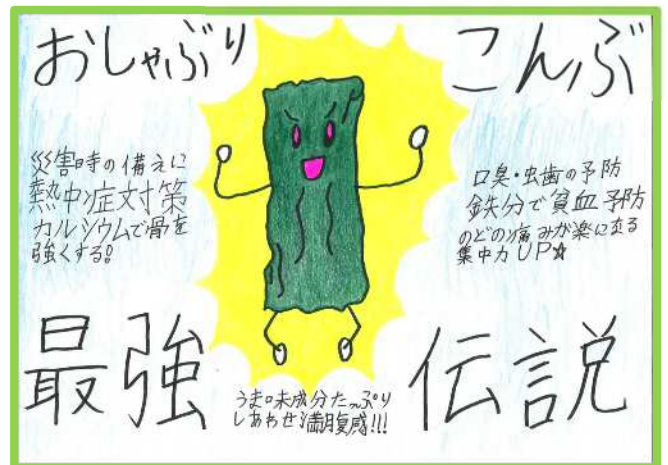 おしゃぶり
こんぶ
災害時の備えに
熱中症対策
カルシウムで骨を
強くする!
口臭・虫歯の予防
鉄分で貧血予防
のどの痛みが楽になる
集中力UP☆
最強
伝説
うま味成分たっぷり
しあわせ満腹感!!!